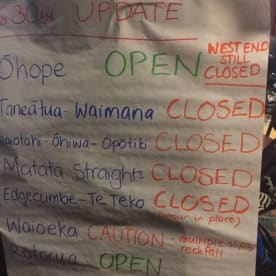 6:30AM UPDATE
Ōhope OPEN WEST END
STILL
CLOSED
Taneātua - Waimana CLOSED
Waiotahi - Ōhiwa - Ōpōtiki CLOSED
Matatā Straights CLOSED
Edgecumbe - Te Teko CLOSED
(detour in place)
Waioeka CAUTION - multiple slips
rockfall
Rotorua OPEN